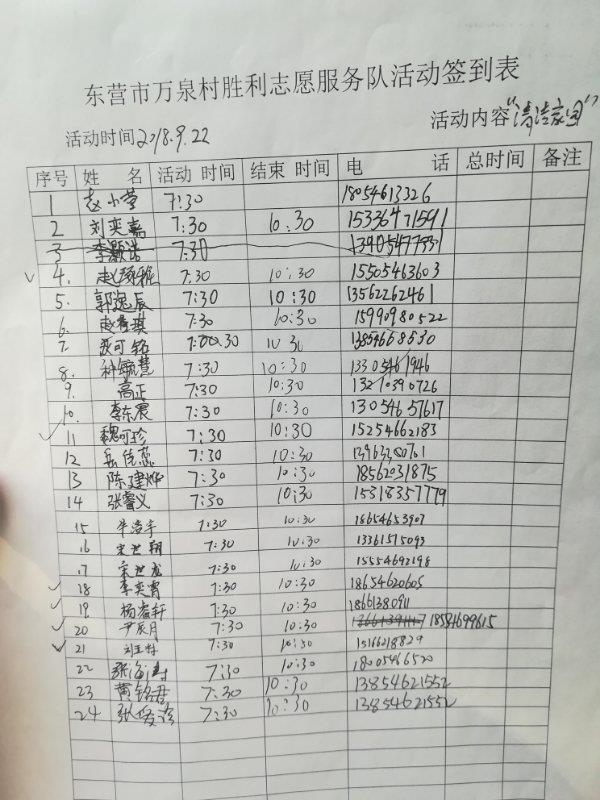 东营市万泉村胜利志愿服务队活动签到表
活动时间2018.9.22 活动内容"清洁家园"
序号 姓 名 活动 时间 结束 时间 电 话 总时间 备注
1 赵小莹 7:30 18054613326
2 刘奕嘉 7:30 10:30 15336471591
3 李颢洁 7:30
4. 7:30 10:30 15505463603
5. 郭逸辰 7:30 10:30 13562262461
6. 7:30 10:30 15990980522
7. 可铭 7:30 10:30 13854668530
8. 毓慧 7:30 10:30 13305461946
9. 高正 7:30 10:30
10. 李东宸 7:30 10:30 13054657617
11 魏可珍 7:30 10:30 15254662183
12 7:30 10:30
13 陈建烨 7:30 10:30 18562031875
14 张睿义 7:30 10:30 15318357779
15 7:30 10:30 18654653907
16 宋世翔 7:30 10:30 13361515093
17 宋世龙 7:30 10:30 15554692198
18 李奕霄 7:30 10:30 18654620605
19. 杨睿轩 7:30 10:30 18661380911
20 尹辰月 7:30 10:30 18584699615
21 7:30 10:30 15166218829
22 张海 7:30 10:30 18005466520
23 黄铭君 7:30 10:30 13854621552
24 张 7:30 10:30 13854621552